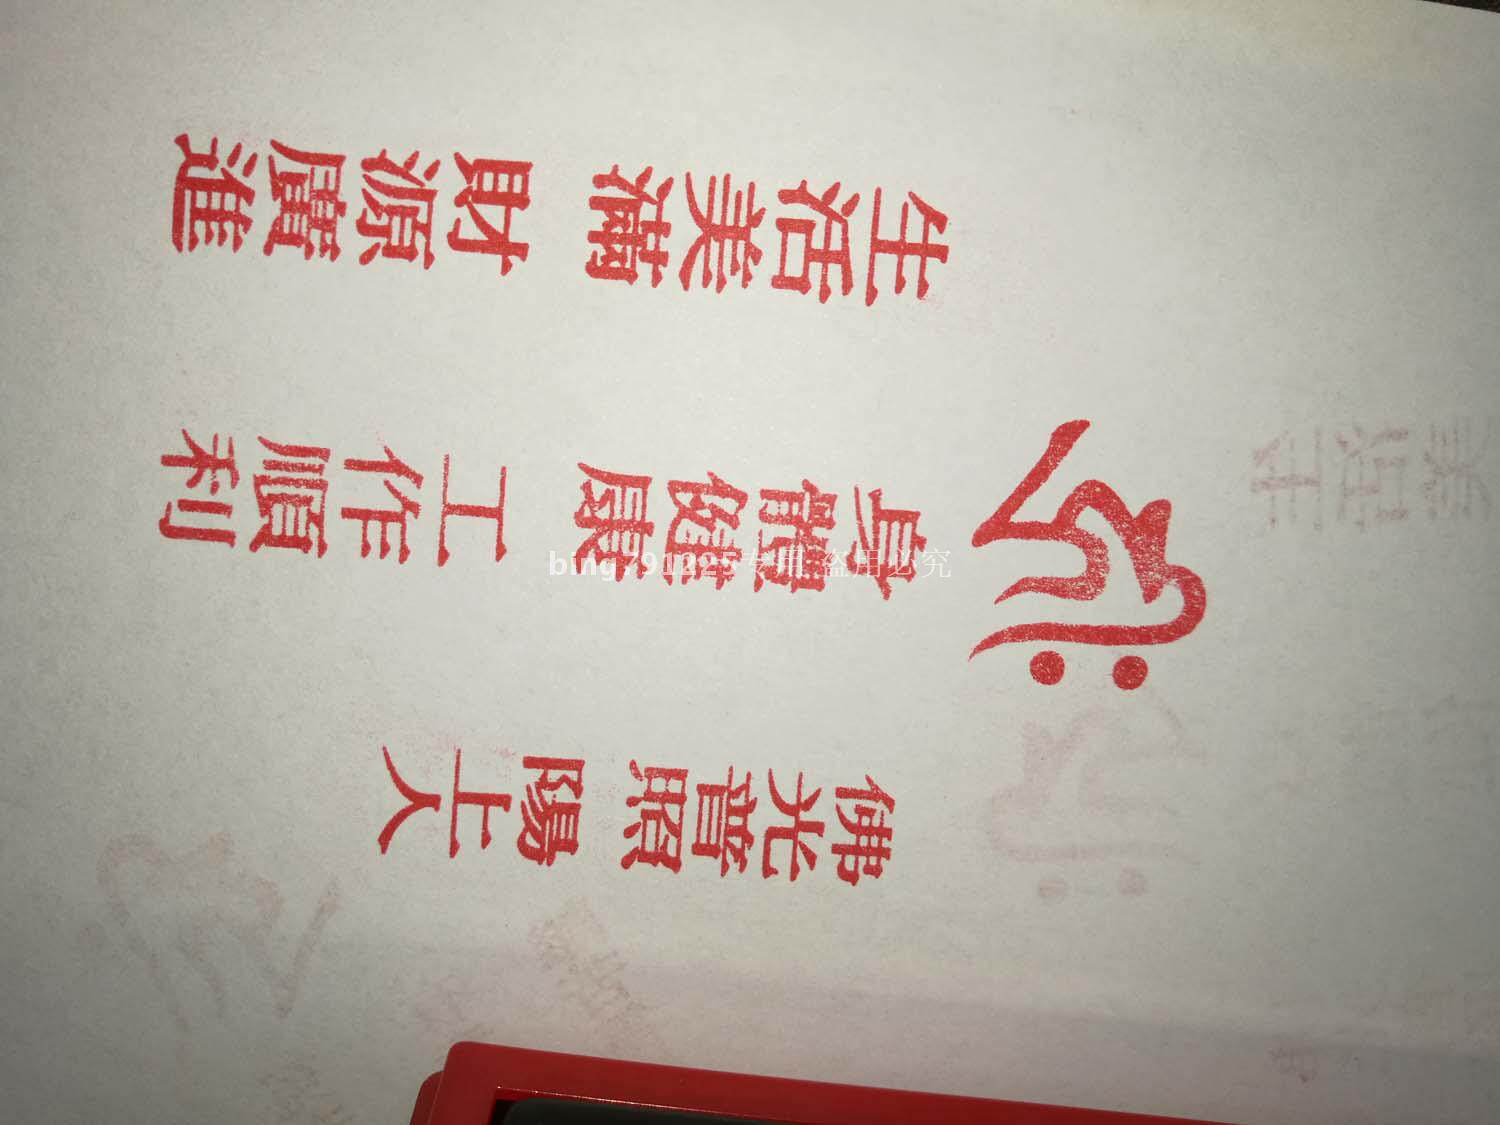 佛光普照 陽上人
身體健康 工作順利
生活美滿 財源廣進
bing791225专用 盗用必究